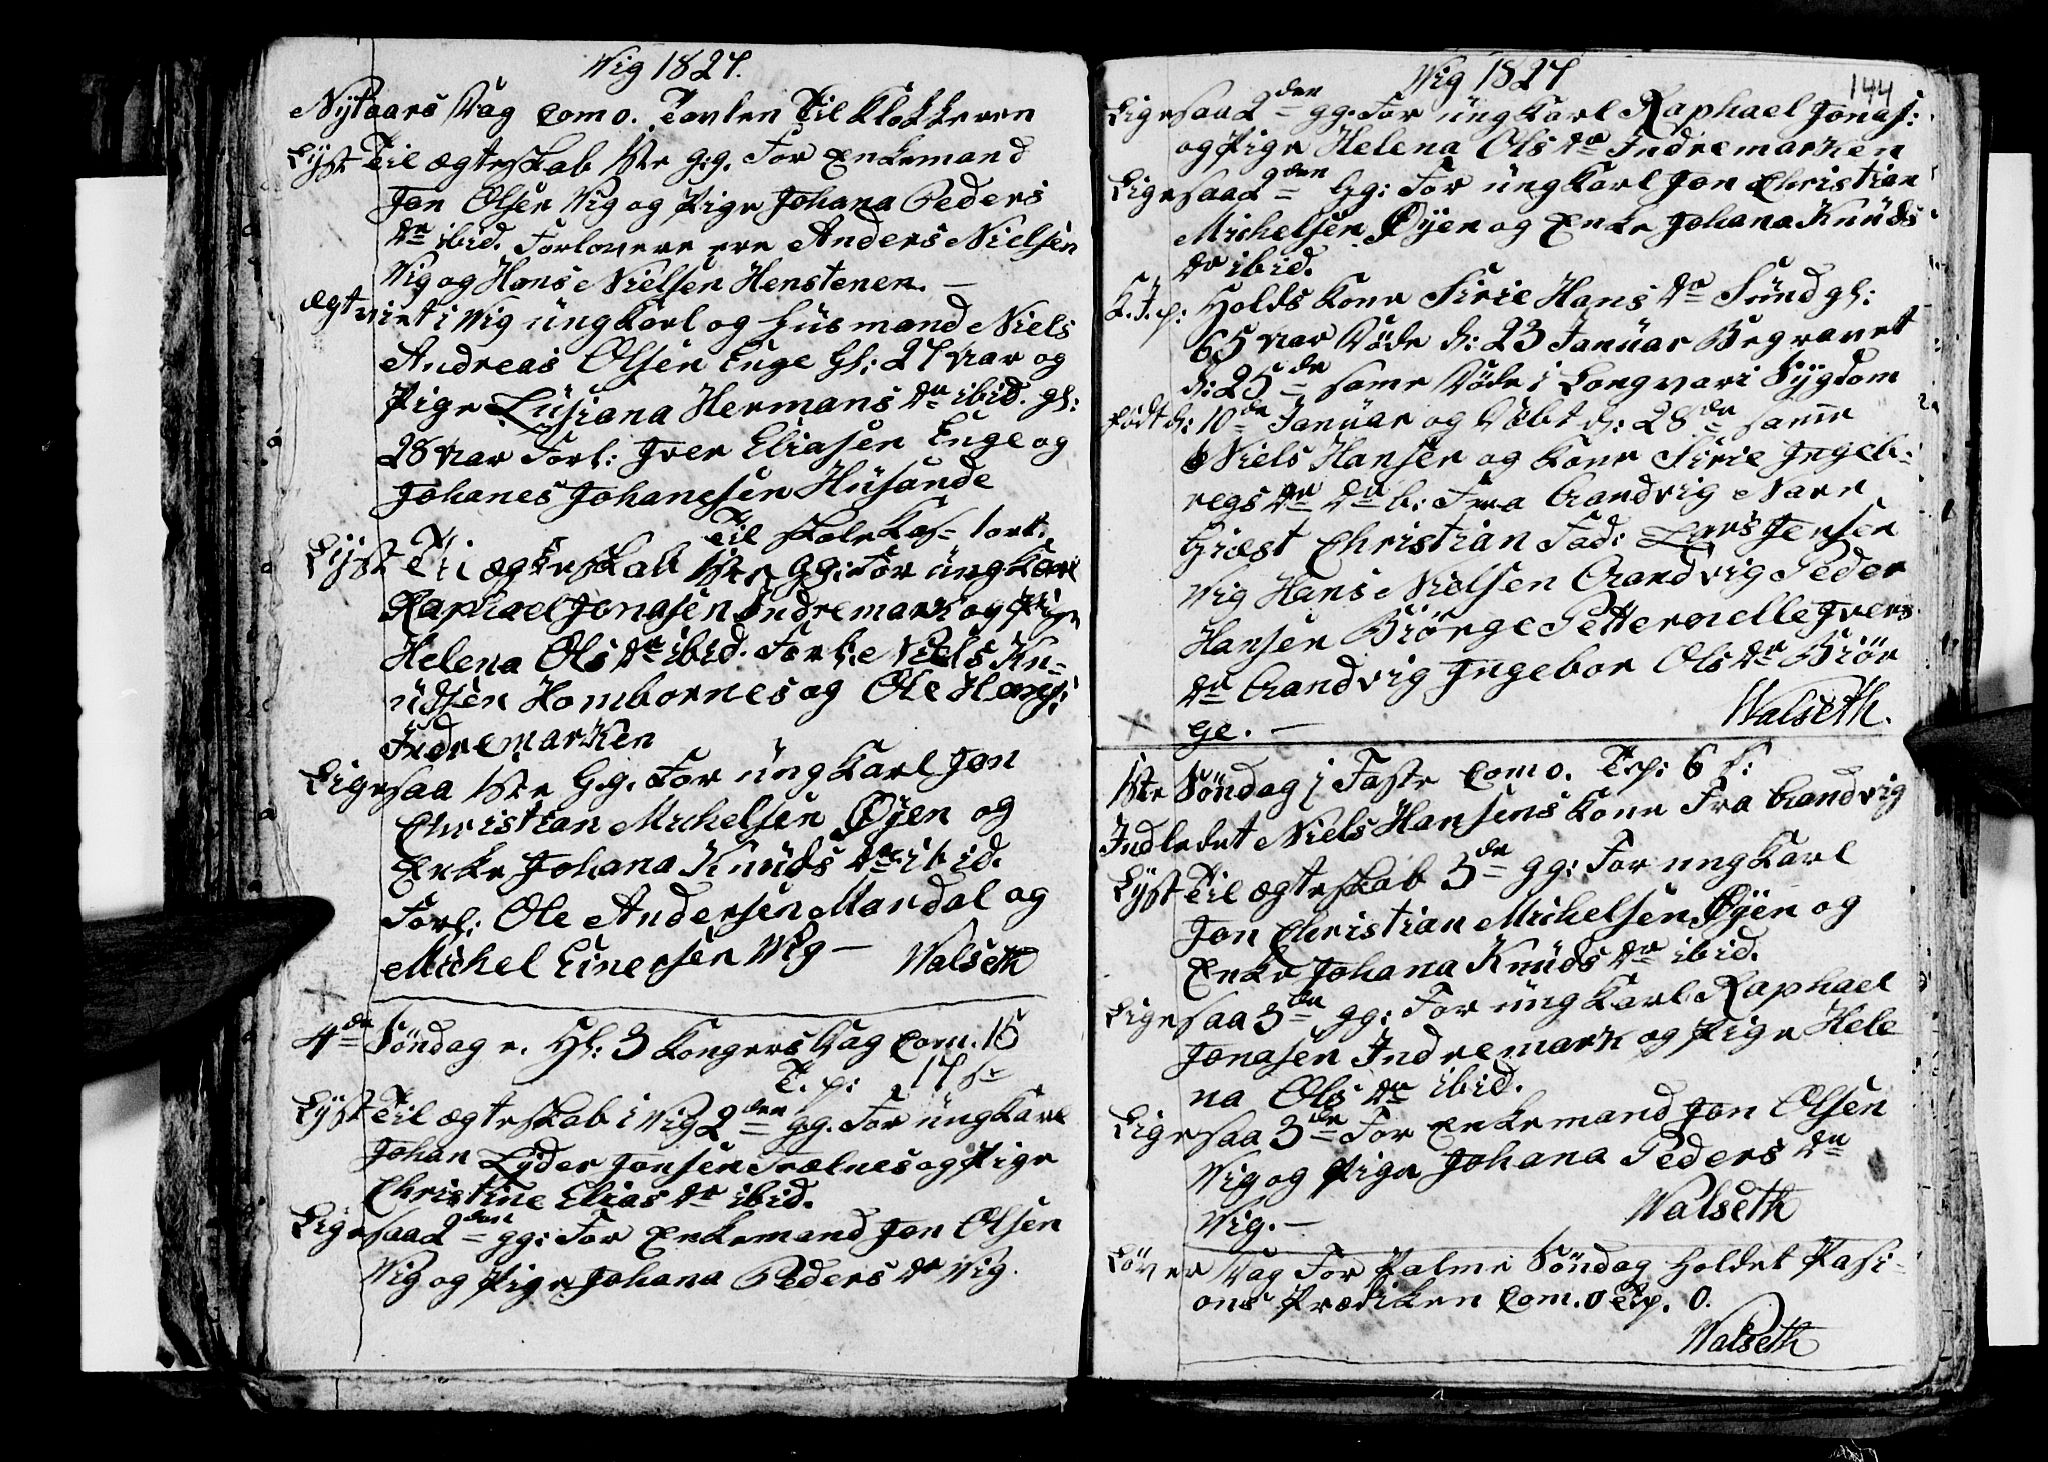 Wig 1827.
Nytaars Dag Como. Tavlen Til Klokkeren
Lyst Til ægteskab 1ste g:g. For Enkemand
Jon Olsen Wig og Pige Johana Peders
dr ibid. Forlovere ere Anders Nielsen
Wig og Hans Nielsen Henstenen. —
Ægtviet i Wig ungkarl og Husmand Niels
Andreas Olsen Enge Gl: 27 aar og
Pige Lusiana Hermans dr ibid. gl:
28 aar Forl: Iver Eliasen Enge og
Johanes Johanesen Husande
Til skolekas 1 ort.
Lyst Til ægteskab 1ste gg: For ungkarl
Raphael Jonasen Indremark og Pige
Helena Ols dr ibid. Forl: Niels Kn-
udsen Hombornes og Ole Hansf:
Indremarken
Ligesaa 1ste G.g. For ungkarl Jon
Christian Michelsen Øyen og
Enke Johana Knuds dr ibid.
Forl: Ole Andersen Mardal og
Michel Einersen Wig — Walseth
4de Söndag e. Hl: 3 Kongers Dag Com. 15
T. p: 17 sk
Lyst Til ægteskab i Wig 2den gg. For ungkarl
Johan Lyder Jonsen Trælnes og Pige
Christine Elias dr ibid.
Ligesaa 2den gg: For Enkemand Jon Olsen
Wig og Pige Johana Peders dr Wig.
Wig 1827
144
Ligesaa 2den gg. For ungkarl Raphael Jonas:
og Pige Helena Ols dr Indremarken
Ligesaa 2den Gg: For ungkarl Jon Christian
Michelsen Øyen og Enke Johana Knuds
dr ibid.
K. J. p: Holds Kone Sirie Hans dr Sund gl:
65 aar Döde d: 23 Januar Begravet
d: 25de same Döde i Langvari Sygdom
födt d: 10de Januar og Döbt d: 28de same
Niels Hansen og Kone Sirie Ingeb-
regs dr dr b: Fra Gandvig Navn
Giæst Christian Fad: Lars Jensen
Wig Hans Nielsen Gandvig Peder
Hansen Biörge Petternelle Ivers
dr Gandvig Ingebor Ols dr Biör
ge. — Walseth.
1ste Söndag i Faste Como. Tp: 6 s:
Indledet Niels Hansens Kone Fra Gandvig
Lyst Til ægteskab 3de gg: For ungkarl
Jon Christian Michelsen Øyen og
Enke Johana Knuds dr ibid.
Ligesaa 3de gg: For ungkarl Raphael
Jonasen Indremark og Pige Hele
na Ols dr ibid.
Ligesaa 3de For Enkemand Jon Olsen
Wig og Pige Johana Peders dr
Wig. — Walseth
Löver Dag For Palme Söndag holdet Pasi-
ons Prædiken Com. 0 Tp. 0.
Walseth